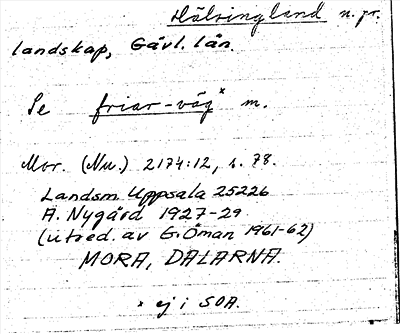 Hälsingland n. pr.
landskap, Gävl. län.
Se friar-väg* m.
Mor. (Nu.) 2174:12, s. 78.
Landsm. Uppsala 25226
A. Nygård 1927-29
(utred. av G. Öman 1961-62)
MORA, DALARNA.
* ej i SOA.